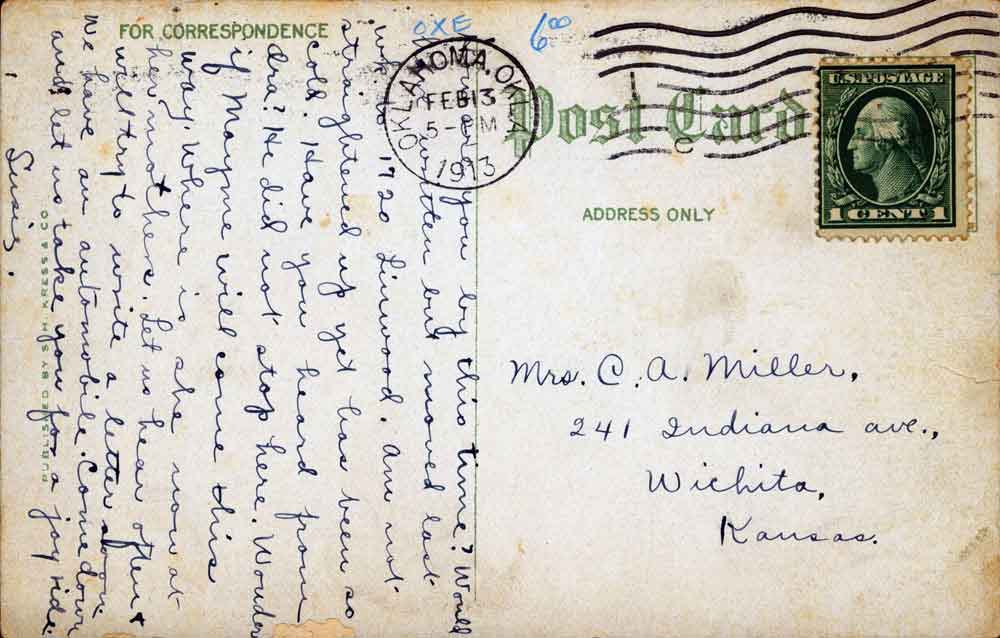 FOR CORRESPONDENCE
OXE
6.00
OKLAHOMA, OKLA.
FEB 13
5- PM
1913
Post Card
U.S. POSTAGE
1 CENT 1
ADDRESS ONLY
Mrs. C. A. Miller,
241 Indiana ave.,
Wichita,
Kansas.
you by this time? Would
written but moved last
1720 Linwood. Am not
straightened up yet has been so
cold. Have you heard from
Ira? He did not stop here. Wonder
if Mayme will come this
way. Where is she now at
her mothers. Let us hear often &
will try to write a letter soon
We have an automobile. Come down
and let us take you for a joy ride.
Susie.
PUBLISHED BY S. H. KRESS & CO.